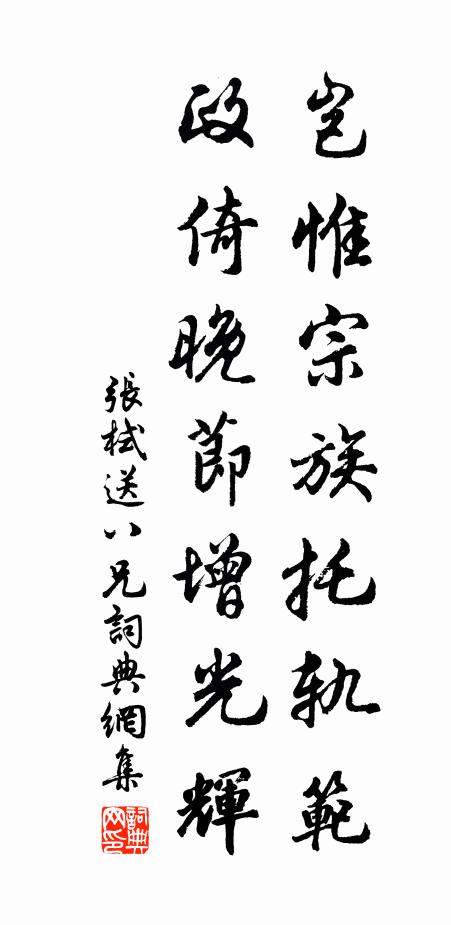 豈惟宗族托軌範
政倚晚節增光輝
張栻送八兄詞典網集
詞典网印